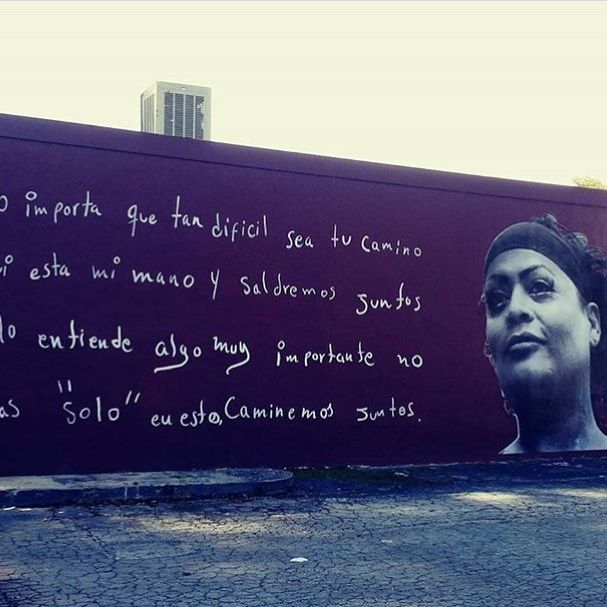 o importa que tan dificil sea tu camino
i esta mi mano y saldremos juntos
lo entiende algo muy importante no
as "solo" en esto, Caminemos juntos.